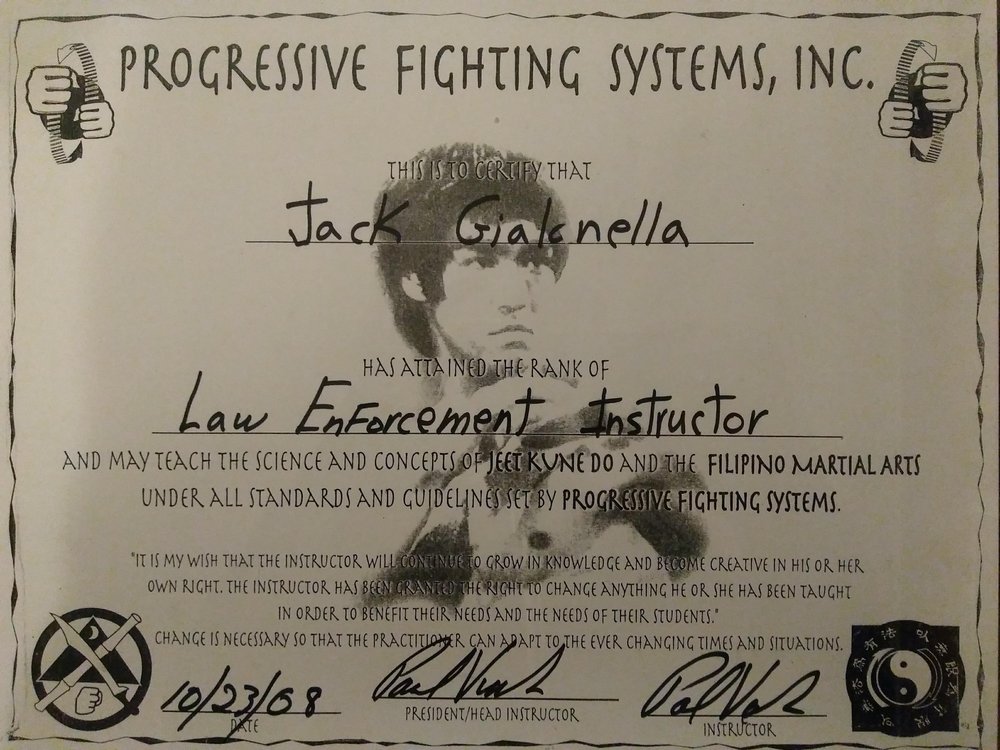 PROGRESSIVE FIGHTING SYSTEMS, INC.
THIS IS TO CERTIFY THAT
Jack Gialonella
HAS ATTAINED THE RANK OF
Law Enforcement Instructor
AND MAY TEACH THE SCIENCE AND CONCEPTS OF JEET KUNE DO AND THE FILIPINO MARTIAL ARTS
UNDER ALL STANDARDS AND GUIDELINES SET BY PROGRESSIVE FIGHTING SYSTEMS.
"IT IS MY WISH THAT THE INSTRUCTOR WILL CONTINUE TO GROW IN KNOWLEDGE AND BECOME CREATIVE IN HIS OR HER
OWN RIGHT. THE INSTRUCTOR HAS BEEN GRANTED THE RIGHT TO CHANGE ANYTHING HE OR SHE HAS BEEN TAUGHT
IN ORDER TO BENEFIT THEIR NEEDS AND THE NEEDS OF THEIR STUDENTS."
CHANGE IS NECESSARY SO THAT THE PRACTITIONER CAN ADAPT TO THE EVER CHANGING TIMES AND SITUATIONS.
10/23/08
DATE
PRESIDENT/HEAD INSTRUCTOR
INSTRUCTOR